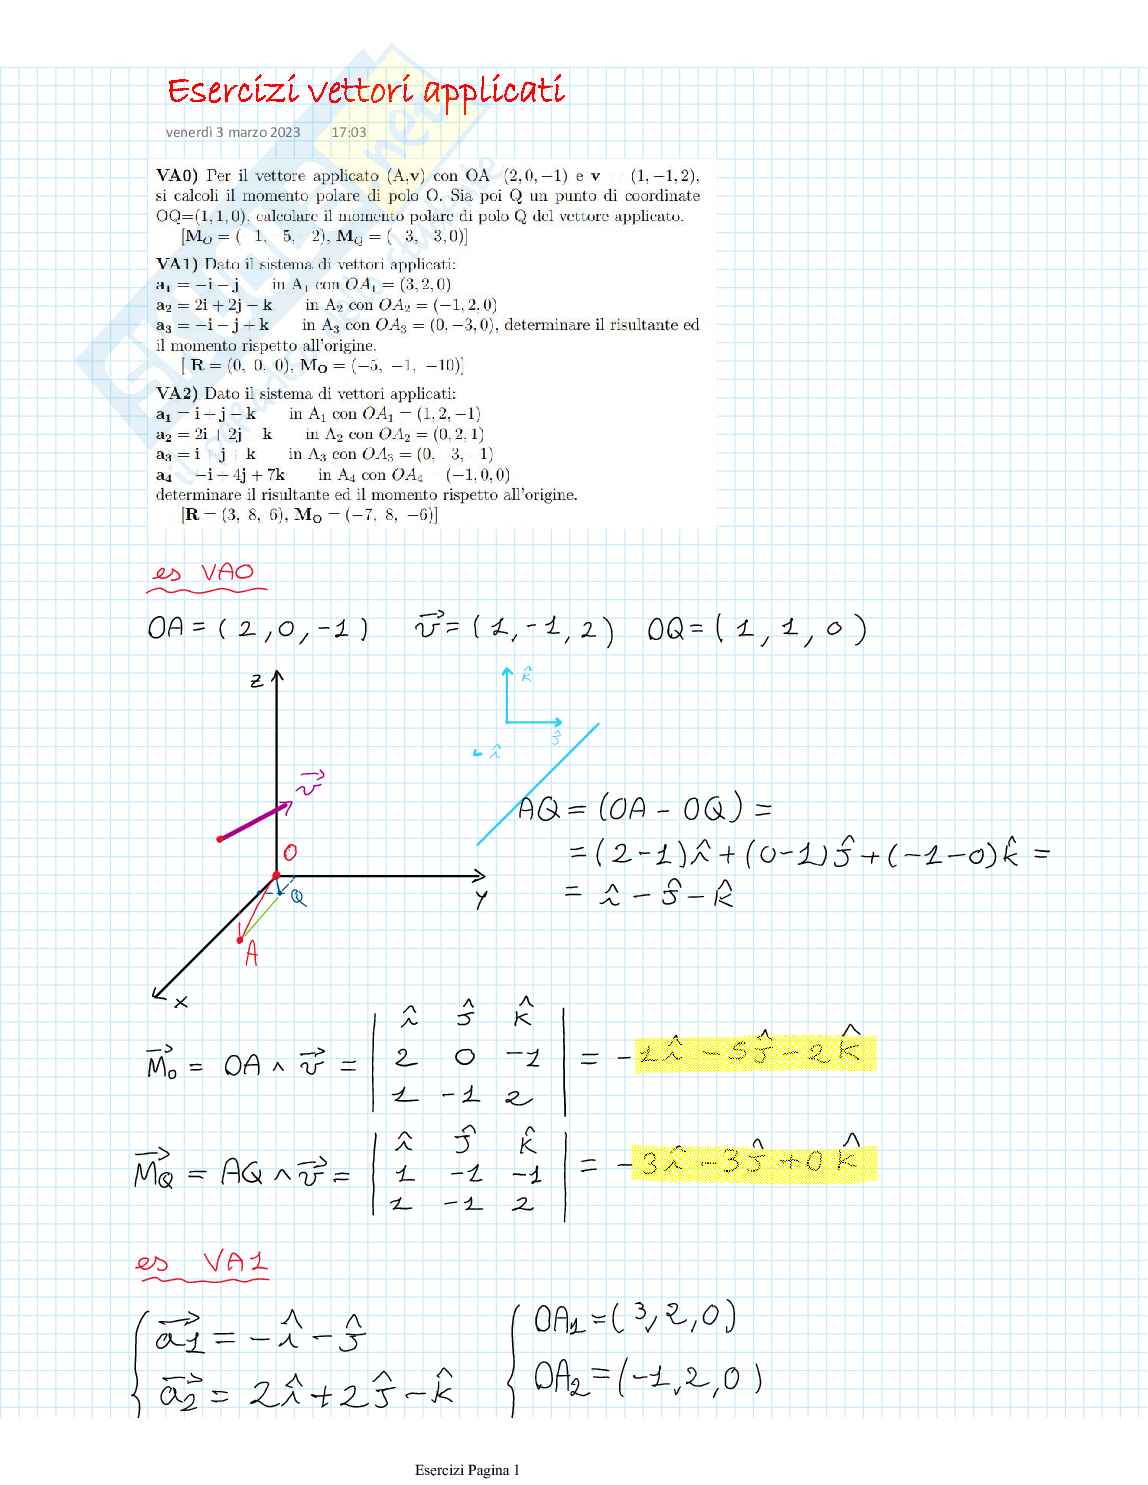 Esercizi vettori applicati
venerdì 3 marzo 2023 17:03
VA0) Per il vettore applicato (A,v) con OA (2, 0, −1) e v (1, −1, 2),
si calcoli il momento polare di polo O. Sia poi Q un punto di coordinate
OQ=(1, 1, 0), calcolare il momento polare di polo Q del vettore applicato.
[M_O = ( 1, 5, 2), M_Q = ( 3, 3, 0)]
VA1) Dato il sistema di vettori applicati:
a₁ = −i − j in A₁ con OA₁ = (3, 2, 0)
a₂ = 2i + 2j − k in A₂ con OA₂ = (−1, 2, 0)
a₃ = −i − j + k in A₃ con OA₃ = (0, −3, 0), determinare il risultante ed
il momento rispetto all'origine.
[ R = (0, 0, 0), M_O = (−5, −1, −10)]
VA2) Dato il sistema di vettori applicati:
a₁ = i − j − k in A₁ con OA₁ = (1, 2, −1)
a₂ = 2i + 2j k in A₂ con OA₂ = (0, 2, 1)
a₃ = i j k in A₃ con OA₃ = (0, 3, 1)
a₄ −i − 4j + 7k in A₄ con OA₄ (−1, 0, 0)
determinare il risultante ed il momento rispetto all'origine.
[R = (3, 8, 6), M_O = (−7, 8, −6)]
es VA0
OA = (2, 0, -1) v⃗ = (1, -1, 2) OQ = (1, 1, 0)
z
k̂
ĵ
î
v⃗
AQ = (OA - OQ) =
O
= (2-1)î + (0-1)ĵ + (-1-0)k̂ =
Q
y
= î - ĵ - k̂
A
x
î ĵ k̂
M⃗o = OA ∧ v⃗ = 2 0 -1 = -1î - 5ĵ - 2k̂
1 -1 2
î ĵ k̂
M⃗Q = AQ ∧ v⃗ = 1 -1 -1 = -3î - 3ĵ + 0k̂
1 -1 2
es VA1
a⃗1 = -î - ĵ OA1 = (3, 2, 0)
a⃗2 = 2î + 2ĵ - k̂ OA2 = (-1, 2, 0)
Esercizi Pagina 1